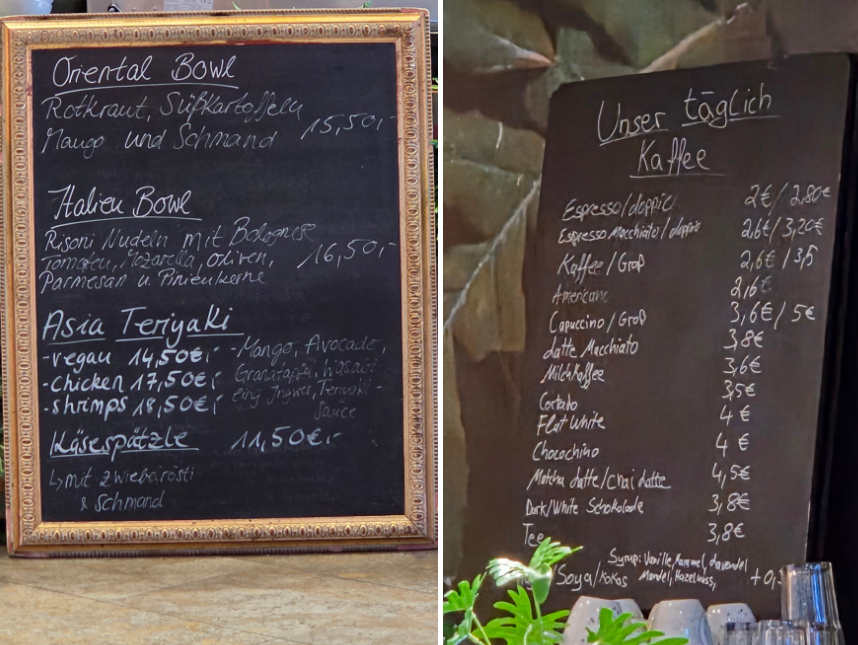 Oriental Bowl
Rotkraut, Süßkartoffeln
Mango und Schmand 15,50,-
Italien Bowl
Risoni Nudeln mit Bolognese
Tomaten, Mozarella, oliven, 16,50,-
Parmesan u. Pinienkerne
Asia Teriyaki
-vegan 14,50€,- -Mango, Avocado,
-chicken 17,50€,- Granatapfel, Wasabi
-shrimps 18,50€,- eing Ingwer, Teriyaki-
Sauce
Käsespätzle 11,50€,-
↳ mit zwiebelrösti
& Schmand
Unser täglich
Kaffee
Espresso/doppio 2€/2,80€
Espresso Macchiato/doppio 2,6€/3,20€
Kaffee/Groß 2,6€/3,5
Americano 2,6€
Capuccino/Groß 3,6€/5€
Latte Macchiato 3,8€
Milchkaffee 3,6€
Cortado 3,5€
Flat White 4 €
Chocochino 4 €
Matcha Latte/Chai Latte 4,5€
Dark/White Schokolade 3,8€
Tee 3,8€
Syrup: Vanille, Karamel, Lavendel
Soya/Kokos Mandel, Hazelnuss, +0,